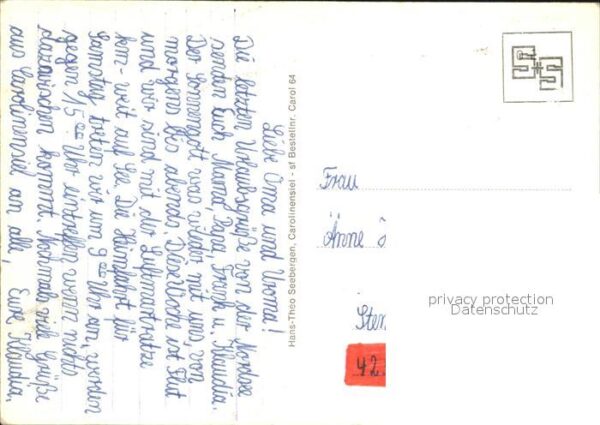 Liebe Oma und Uroma!
Die letzten Urlaubsgrüße von der Nordsee
senden Euch Mama, Papa, Frigga u. Klaudia.
Der Sonnengott war wieder mit uns, von
morgens bis abends. Diese Woche ist Flut
und wir sind mit der Luftmatratze
weit auf See. Die Heimfahrt für
Samstag treten wir um 9 00 Uhr an, werden
gegen 15 00 Uhr eintreffen wenn nichts
dazwischen kommt. Nochmals viele Grüße
aus Carolinensiel an alle, Eure Klaudia.
Hans-Theo Seebergen, Carolinensiel - sf Bestellnr. Carol 64
Frau
Änne
Ster
42
privacy protection
Datenschutz